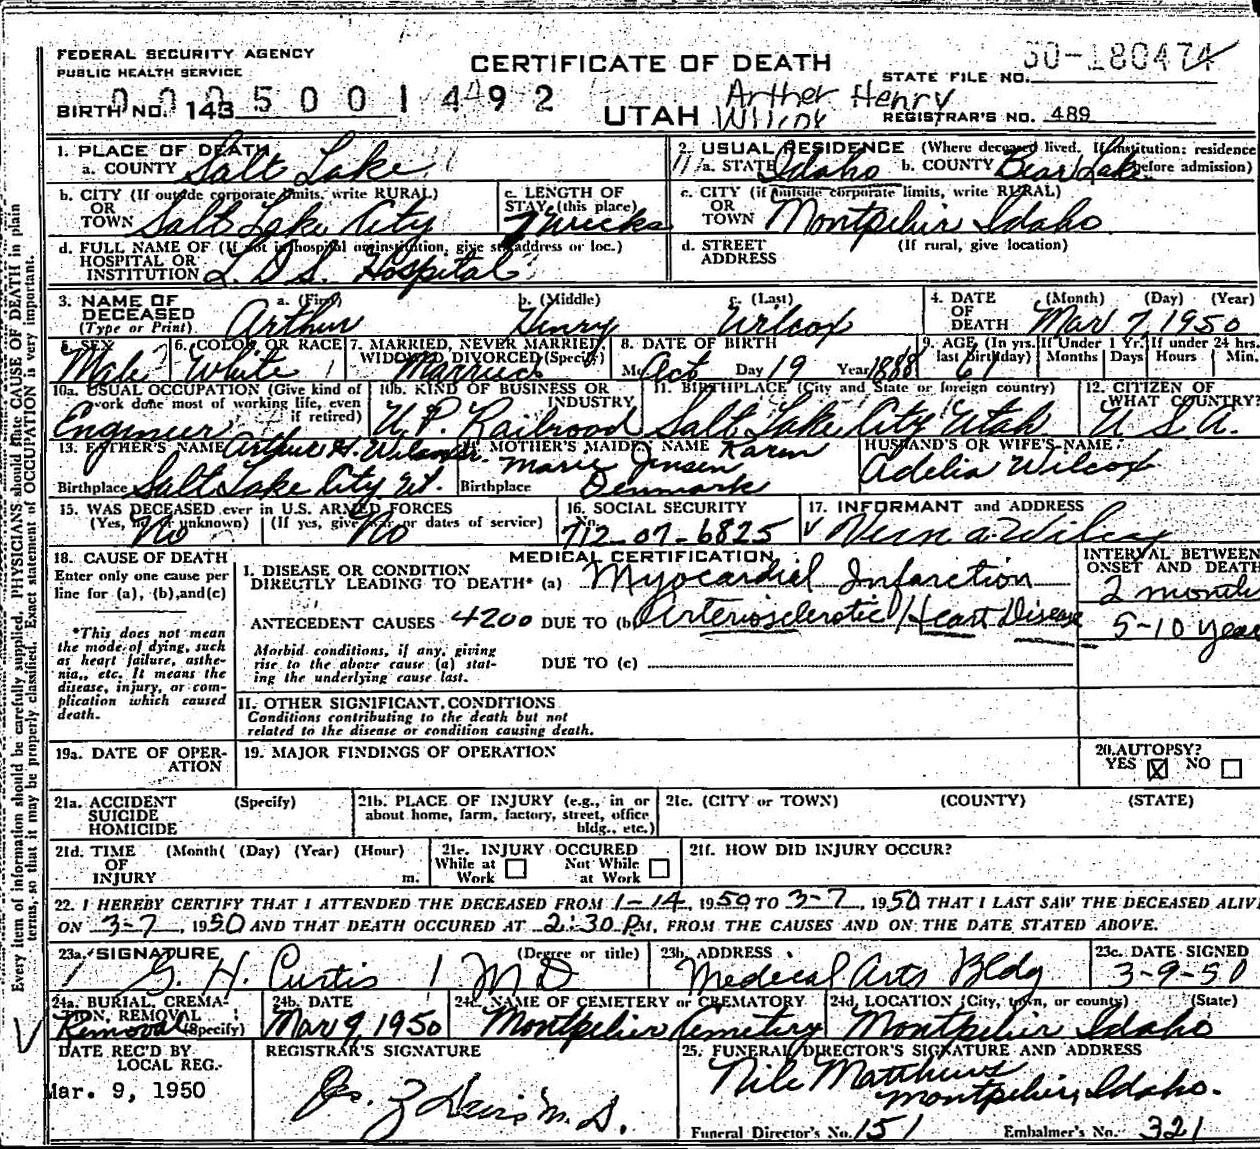 FEDERAL SECURITY AGENCY
PUBLIC HEALTH SERVICE
CERTIFICATE OF DEATH
STATE FILE NO. 50-180474
BIRTH NO. 143
0005001492
UTAH
Arther Henry
Wilcox
REGISTRAR'S NO. 489
1. PLACE OF DEATH
a. COUNTY Salt Lake
2. USUAL RESIDENCE (Where deceased lived. If institution: residence before admission)
a. STATE Idaho b. COUNTY Bear Lake
b. CITY (If outside corporate limits, write RURAL) OR TOWN Salt Lake City
c. LENGTH OF STAY (this place) 7 weeks
c. CITY (if outside corporate limits, write RURAL) OR TOWN Montpelier Idaho
d. FULL NAME OF (If not in hospital or institution, give st. address or loc.) HOSPITAL OR INSTITUTION L. D. S. Hospital
d. STREET ADDRESS (If rural, give location)
3. NAME OF DECEASED (Type or Print)
a. (First) Arthur b. (Middle) Henry c. (Last) Wilcox
4. DATE OF DEATH (Month) (Day) (Year) Mar 7, 1950
5. SEX Male
6. COLOR OR RACE White
7. MARRIED, NEVER MARRIED, WIDOWED, DIVORCED (Specify) Married
8. DATE OF BIRTH Mo Oct Day 19 Year 1888
9. AGE (In yrs. last birthday) 61
If Under 1 Yr. Months Days
If under 24 hrs. Hours Min.
10a. USUAL OCCUPATION (Give kind of work done most of working life, even if retired) Engineer
10b. KIND OF BUSINESS OR INDUSTRY U. P. Railroad
11. BIRTHPLACE (City and State or foreign country) Salt Lake City Utah
12. CITIZEN OF WHAT COUNTRY? U. S. A.
13. FATHER'S NAME Arthur H. Wilcox Sr.
Birthplace Salt Lake City Ut.
14. MOTHER'S MAIDEN NAME Karen Marie Jensen
Birthplace Denmark
HUSBAND'S OR WIFE'S NAME
Adelia Wilcox
15. WAS DECEASED ever in U.S. ARMED FORCES
(Yes, no or unknown) No (If yes, give war or dates of service) No
16. SOCIAL SECURITY No. 712-07-6825
17. INFORMANT and ADDRESS
Verna Wilcox
18. CAUSE OF DEATH
Enter only one cause per line for (a), (b), and (c)
*This does not mean the mode of dying, such as heart failure, asthenia, etc. It means the disease, injury, or complication which caused death.
MEDICAL CERTIFICATION
INTERVAL BETWEEN ONSET AND DEATH
I. DISEASE OR CONDITION DIRECTLY LEADING TO DEATH* (a) Myocardial Infarction 2 months
ANTECEDENT CAUSES 4200 DUE TO (b) Arteriosclerotic Heart Disease 5-10 year
Morbid conditions, if any, giving rise to the above cause (a) stating the underlying cause last.
DUE TO (c)
II. OTHER SIGNIFICANT CONDITIONS
Conditions contributing to the death but not related to the disease or condition causing death.
19a. DATE OF OPERATION
19. MAJOR FINDINGS OF OPERATION
20. AUTOPSY?
YES ☒ NO ☐
21a. ACCIDENT SUICIDE HOMICIDE (Specify)
21b. PLACE OF INJURY (e.g., in or about home, farm, factory, street, office bldg., etc.)
21c. (CITY or TOWN) (COUNTY) (STATE)
21d. TIME OF INJURY (Month( (Day) (Year) (Hour) m.
21e. INJURY OCCURED
While at Work ☐ Not While at Work ☐
21f. HOW DID INJURY OCCUR?
22. I HEREBY CERTIFY THAT I ATTENDED THE DECEASED FROM 1-14, 1950, TO 3-7, 1950 THAT I LAST SAW THE DECEASED ALIVE
ON 3-7, 1950 AND THAT DEATH OCCURED AT 2:30 P.M., FROM THE CAUSES AND ON THE DATE STATED ABOVE.
23a. SIGNATURE (Degree or title)
G. H. Curtis M D
23b. ADDRESS
Medical Arts Bldg
23c. DATE SIGNED
3-9-50
24a. BURIAL, CREMATION, REMOVAL (Specify) Removal
24b. DATE
Mar 9, 1950
24c. NAME OF CEMETERY or CREMATORY
Montpelier Cemetery
24d. LOCATION (City, town, or county) (State)
Montpelier Idaho
DATE REC'D BY LOCAL REG.
Mar. 9, 1950
REGISTRAR'S SIGNATURE
Davis M. D.
25. FUNERAL DIRECTOR'S SIGNATURE AND ADDRESS
Nile Matthews
Montpelier, Idaho.
Funeral Director's No. 151 Embalmer's No. 321
Every item of information should be carefully supplied. PHYSICIANS should state CAUSE OF DEATH in plain
terms, so that it may be properly classified. Exact statement of OCCUPATION is very important.